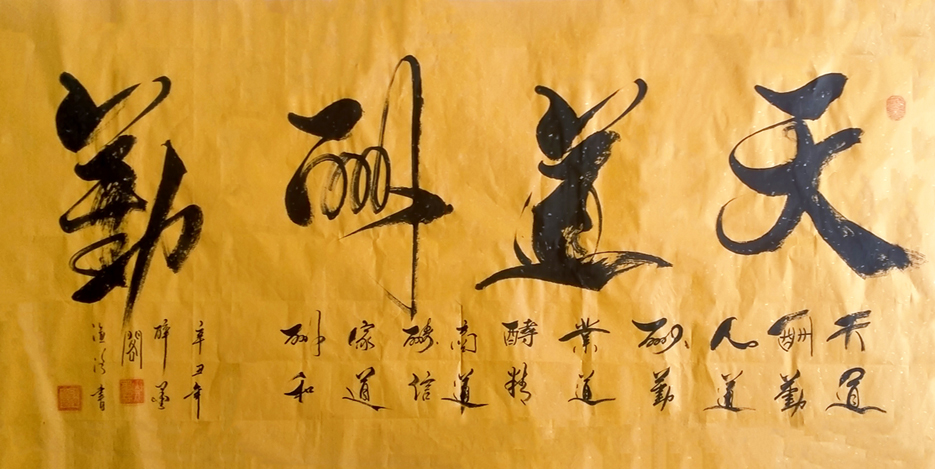 天道酬勤
天道
酬勤
人道
酬勤
業道
酬精
商道
酬信
家道
酬和
辛丑年
醉墨
閣
漁書